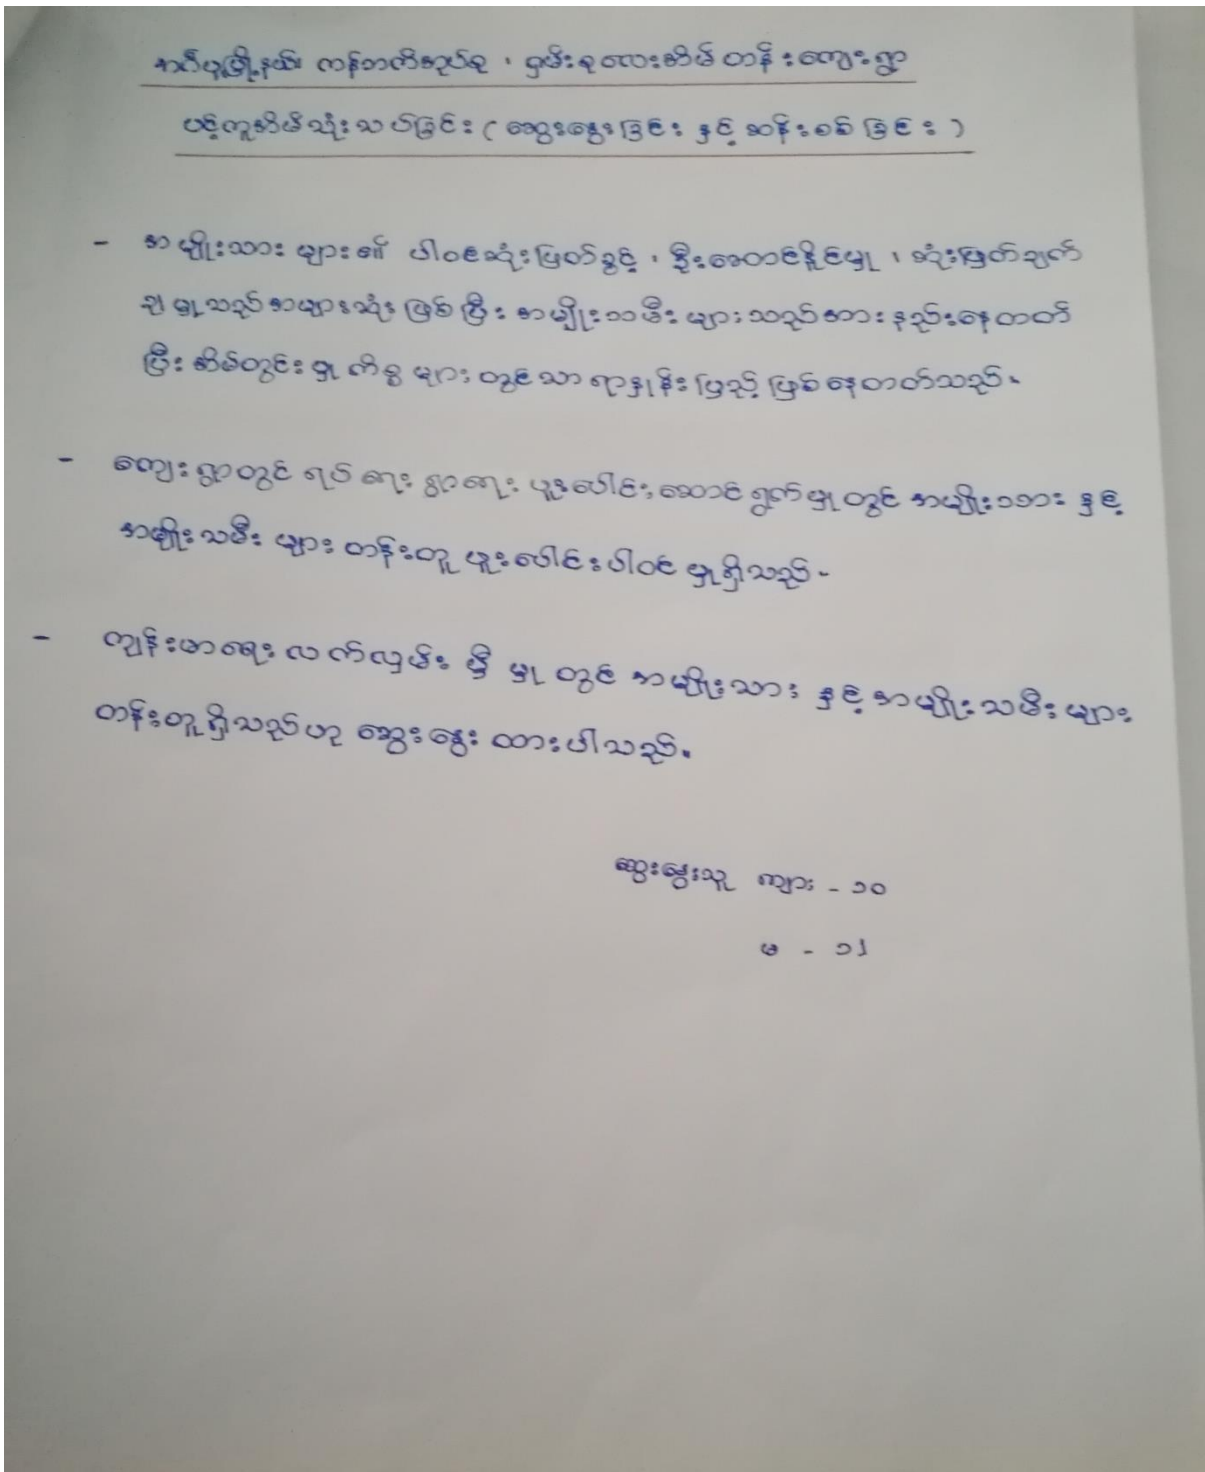 အင်္ဂပူမြို့နယ်၊ ကန်ဘက်အုပ်စု ၊ ငှမ်းစုလေးအိမ်တန်းကျေးရွာ
ပင့်ကူအိမ်သုံးသပ်ခြင်း ( ဆွေးနွေးခြင်း နှင့် ဆန်းစစ်ခြင်း )
- အမျိုးသားများ၏ ပါဝင်ဆုံးဖြတ်ခွင့် ၊ ဦးဆောင်နိုင်မှု ၊ ဆုံးဖြတ်ချက်
ချမှုသည်အများဆုံးဖြစ်ပြီး အမျိုးသမီးများသည်အားနည်းနေတတ်
ပြီး အိမ်တွင်းမှုကိစ္စများတွင်သာ ရာနှုန်းပြည့်ဖြစ်နေတတ်သည်။
- ကျေးရွာတွင် ရပ်ရေးရွာရေး ပူးပေါင်းဆောင်ရွက်မှုတွင် အမျိုးသား နှင့်
အမျိုးသမီးများ တန်းတူ ပူးပေါင်းပါဝင်မှုရှိသည်။
- ကျန်းမာရေးလက်လှမ်းမှီမှုတွင် အမျိုးသား နှင့် အမျိုးသမီးများ
တန်းတူရှိသည်ဟု ဆွေးနွေးထားပါသည်။
ဆွေးနွေးသူ ကျား - ၁၀
မ - ၁၂